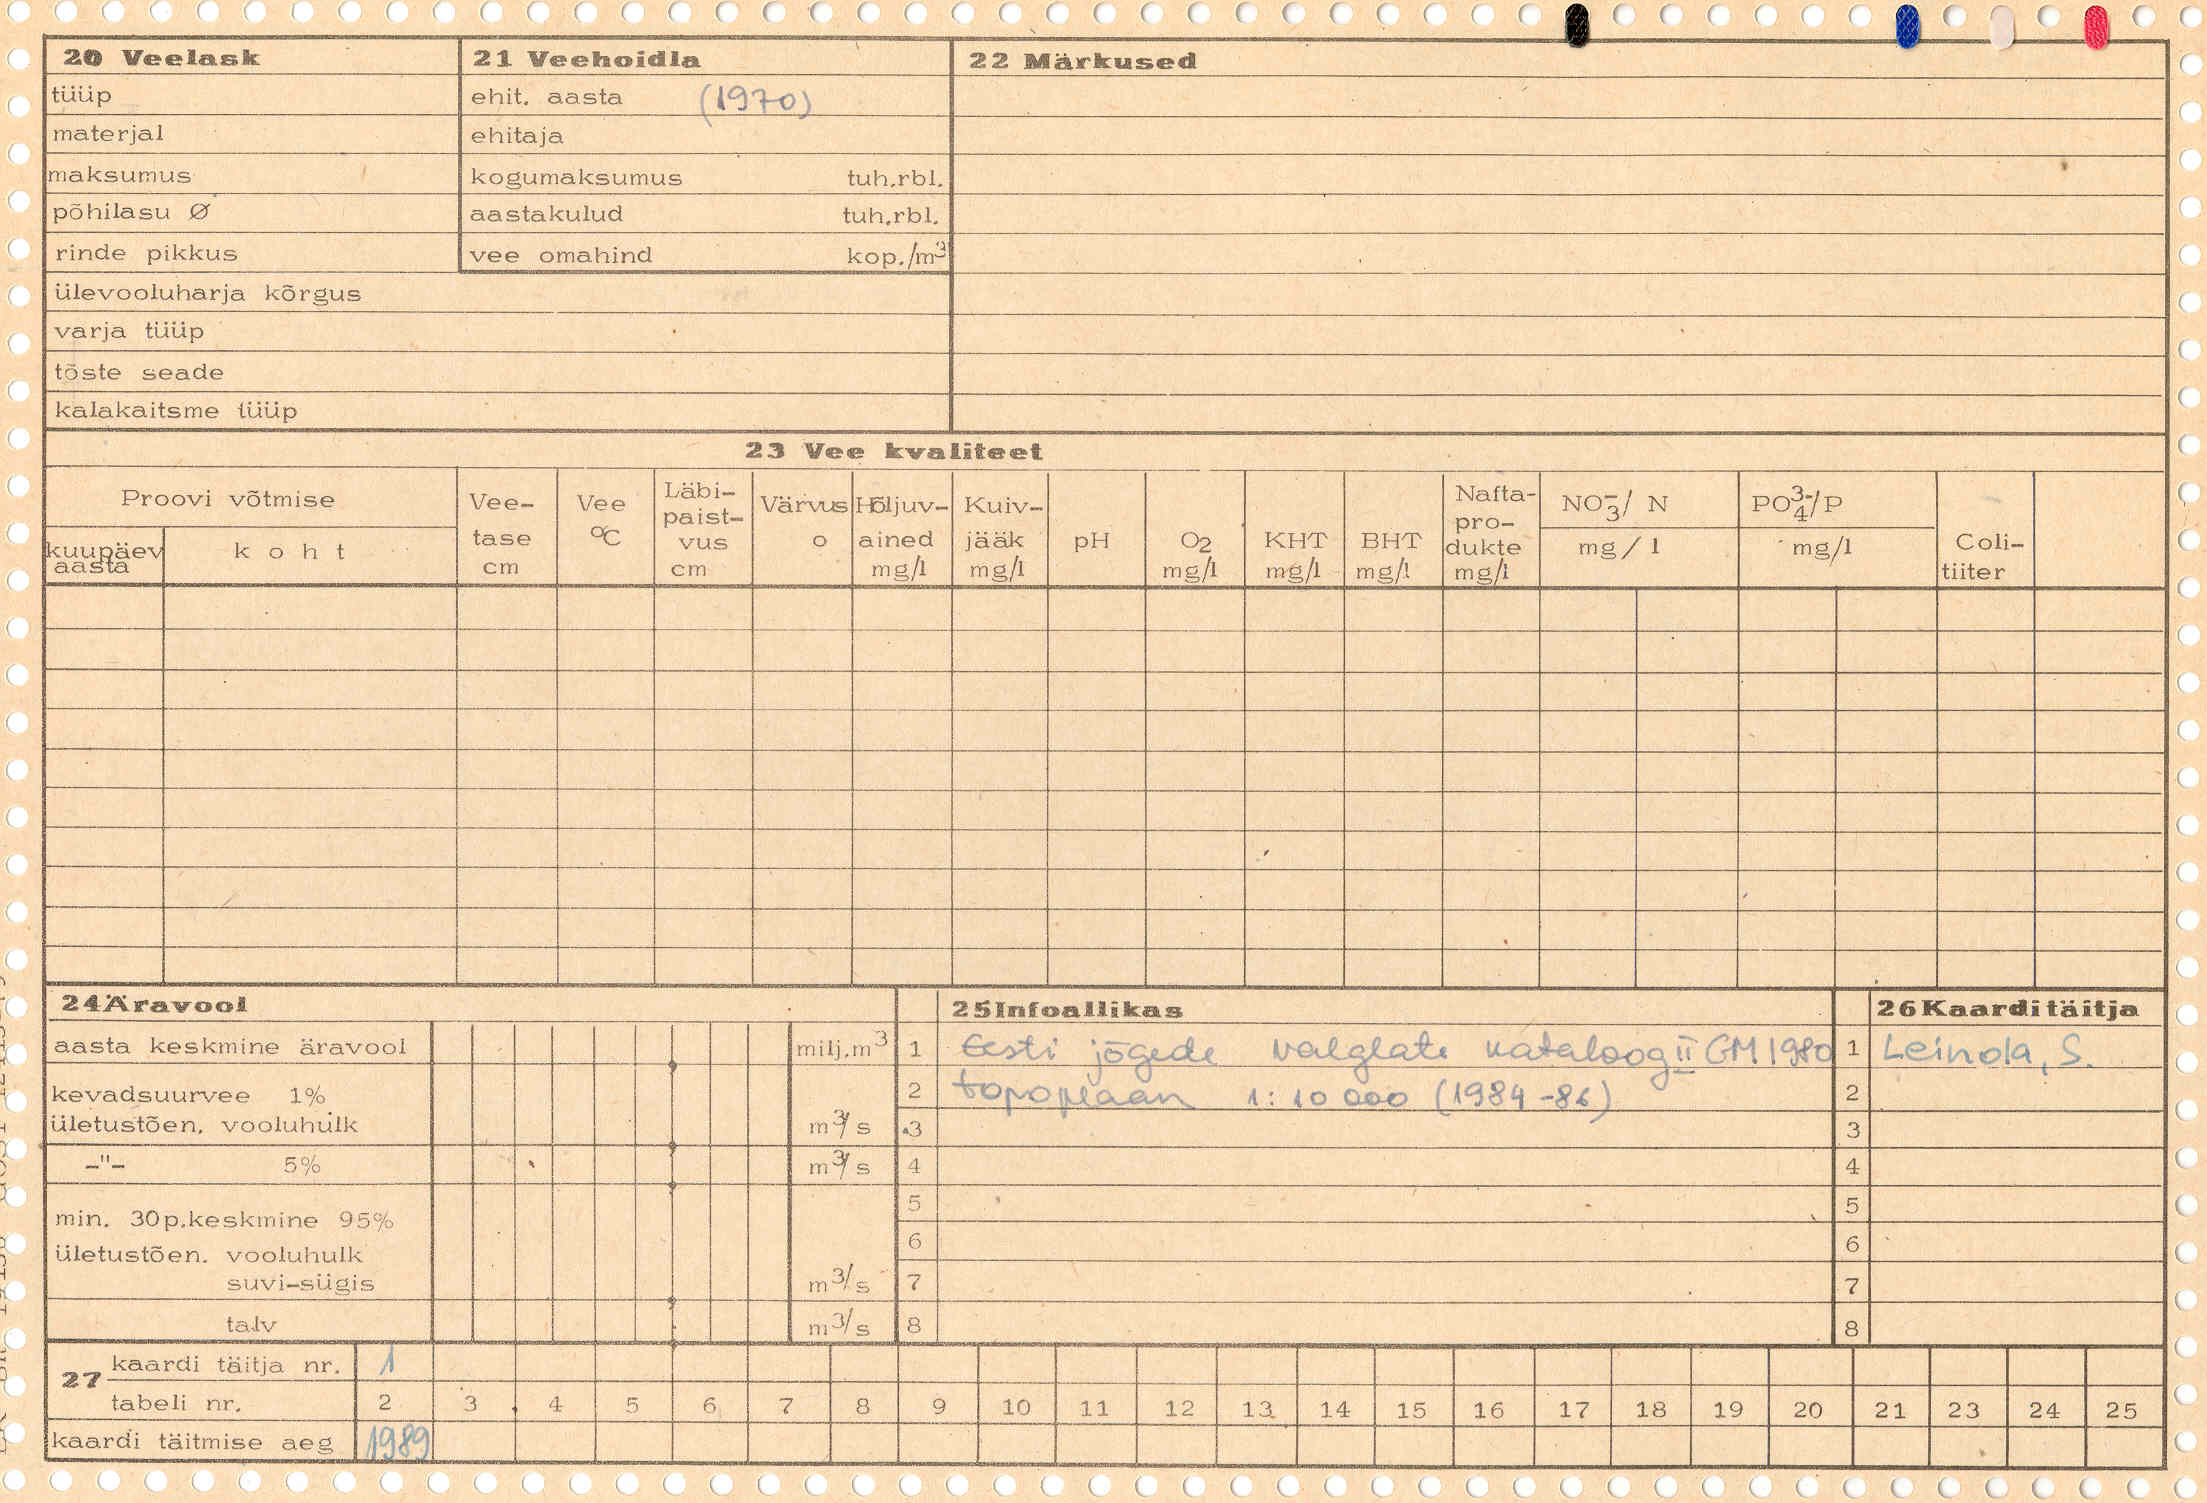 20 Veelask
tüüp
materjal
maksumus
põhilasu Ø
rinde pikkus
ülevooluharja kõrgus
varja tüüp
tõste seade
kalakaitsme tüüp
21 Veehoidla
ehit. aasta (1970)
ehitaja
kogumaksumus tuh.rbl.
aastakulud tuh.rbl.
vee omahind kop./m³
22 Märkused
23 Vee kvaliteet
Proovi võtmise
kuupäev
aasta
koht
Vee-
tase
cm
Vee
°C
Läbi-
paist-
vus
cm
Värvus
o
Hõljuv-
ained
mg/l
Kuiv-
jääk
mg/l
pH
O2
mg/l
KHT
mg/l
BHT
mg/l
Nafta-
pro-
dukte
mg/l
NO₃⁻/ N
mg/l
PO₄³⁻/P
mg/l
Coli-
tiiter
24 Äravool
aasta keskmine äravool milj.m³
kevadsuurvee 1%
ületustõen. vooluhulk m³/s
-"- 5% m³/s
min. 30p.keskmine 95%
ületustõen. vooluhulk
suvi-sügis m³/s
talv m³/s
25 Infoallikas
1 Eesti jõgede valglate kataloog II GM 1980
2 topoplaan 1:10 000 (1984-86)
3
4
5
6
7
8
26 Kaardi täitja
1 Leinola, S.
2
3
4
5
6
7
8
27 kaardi täitja nr. 1
tabeli nr. 2 3 4 5 6 7 8 9 10 11 12 13 14 15 16 17 18 19 20 21 23 24 25
kaardi täitmise aeg 1989